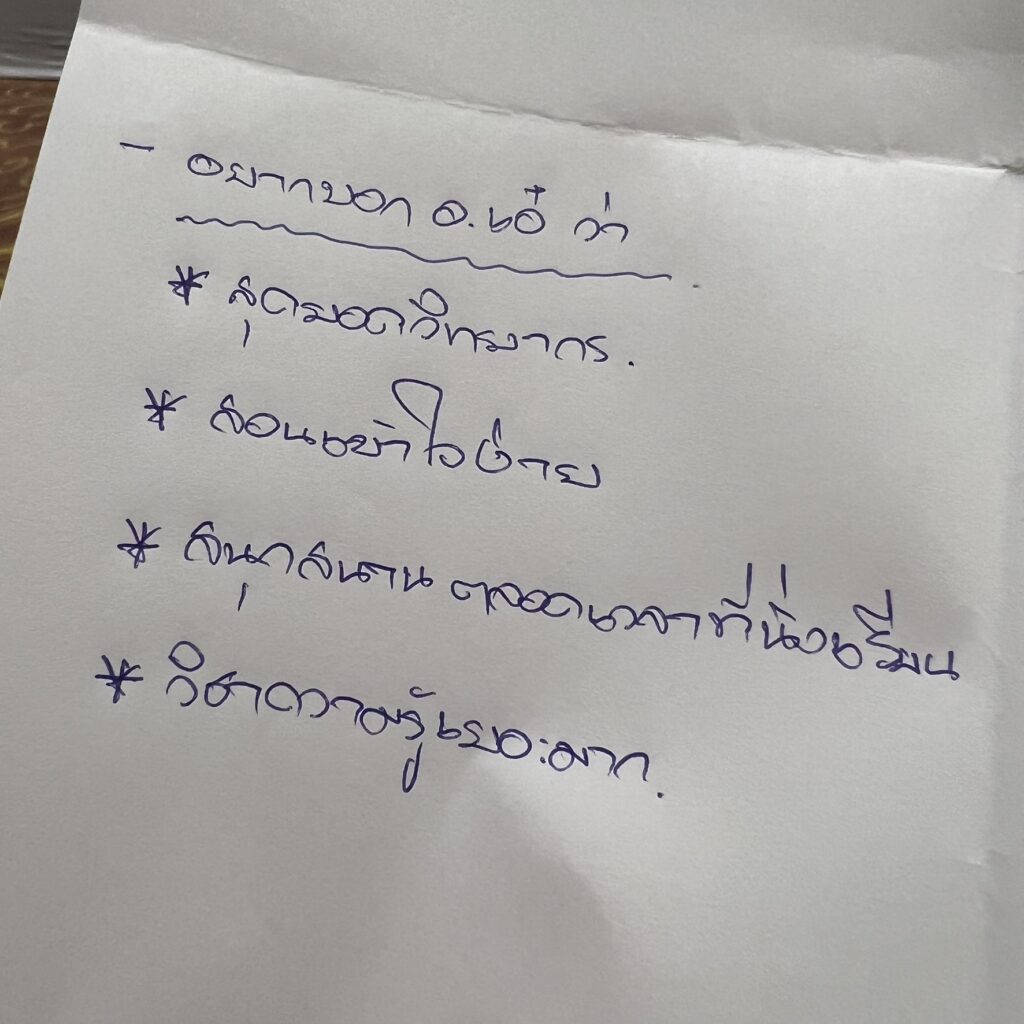 - อยากบอก อ.เอ๋ ว่า.
* สุดยอดวิทยากร.
* สอนเข้าใจง่าย
* สนุกสนาน ตลอดเวลาที่นั่งเรียน
* วิชาความรู้เยอะมาก.